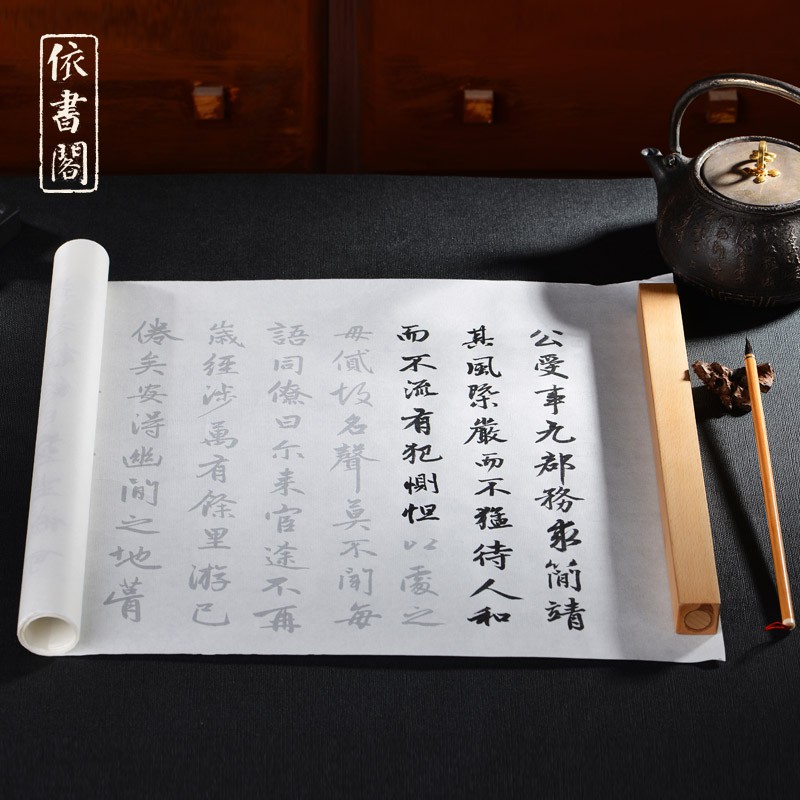 依書閣
公受事九郡務求簡靖
其風槩嚴而不猛待人和
而不流有犯惻怛以處之
毋貳故名聲莫不聞每
語同僚曰尓来官途不再
歲經涉萬有餘里游已
倦矣安得幽閒之地葺